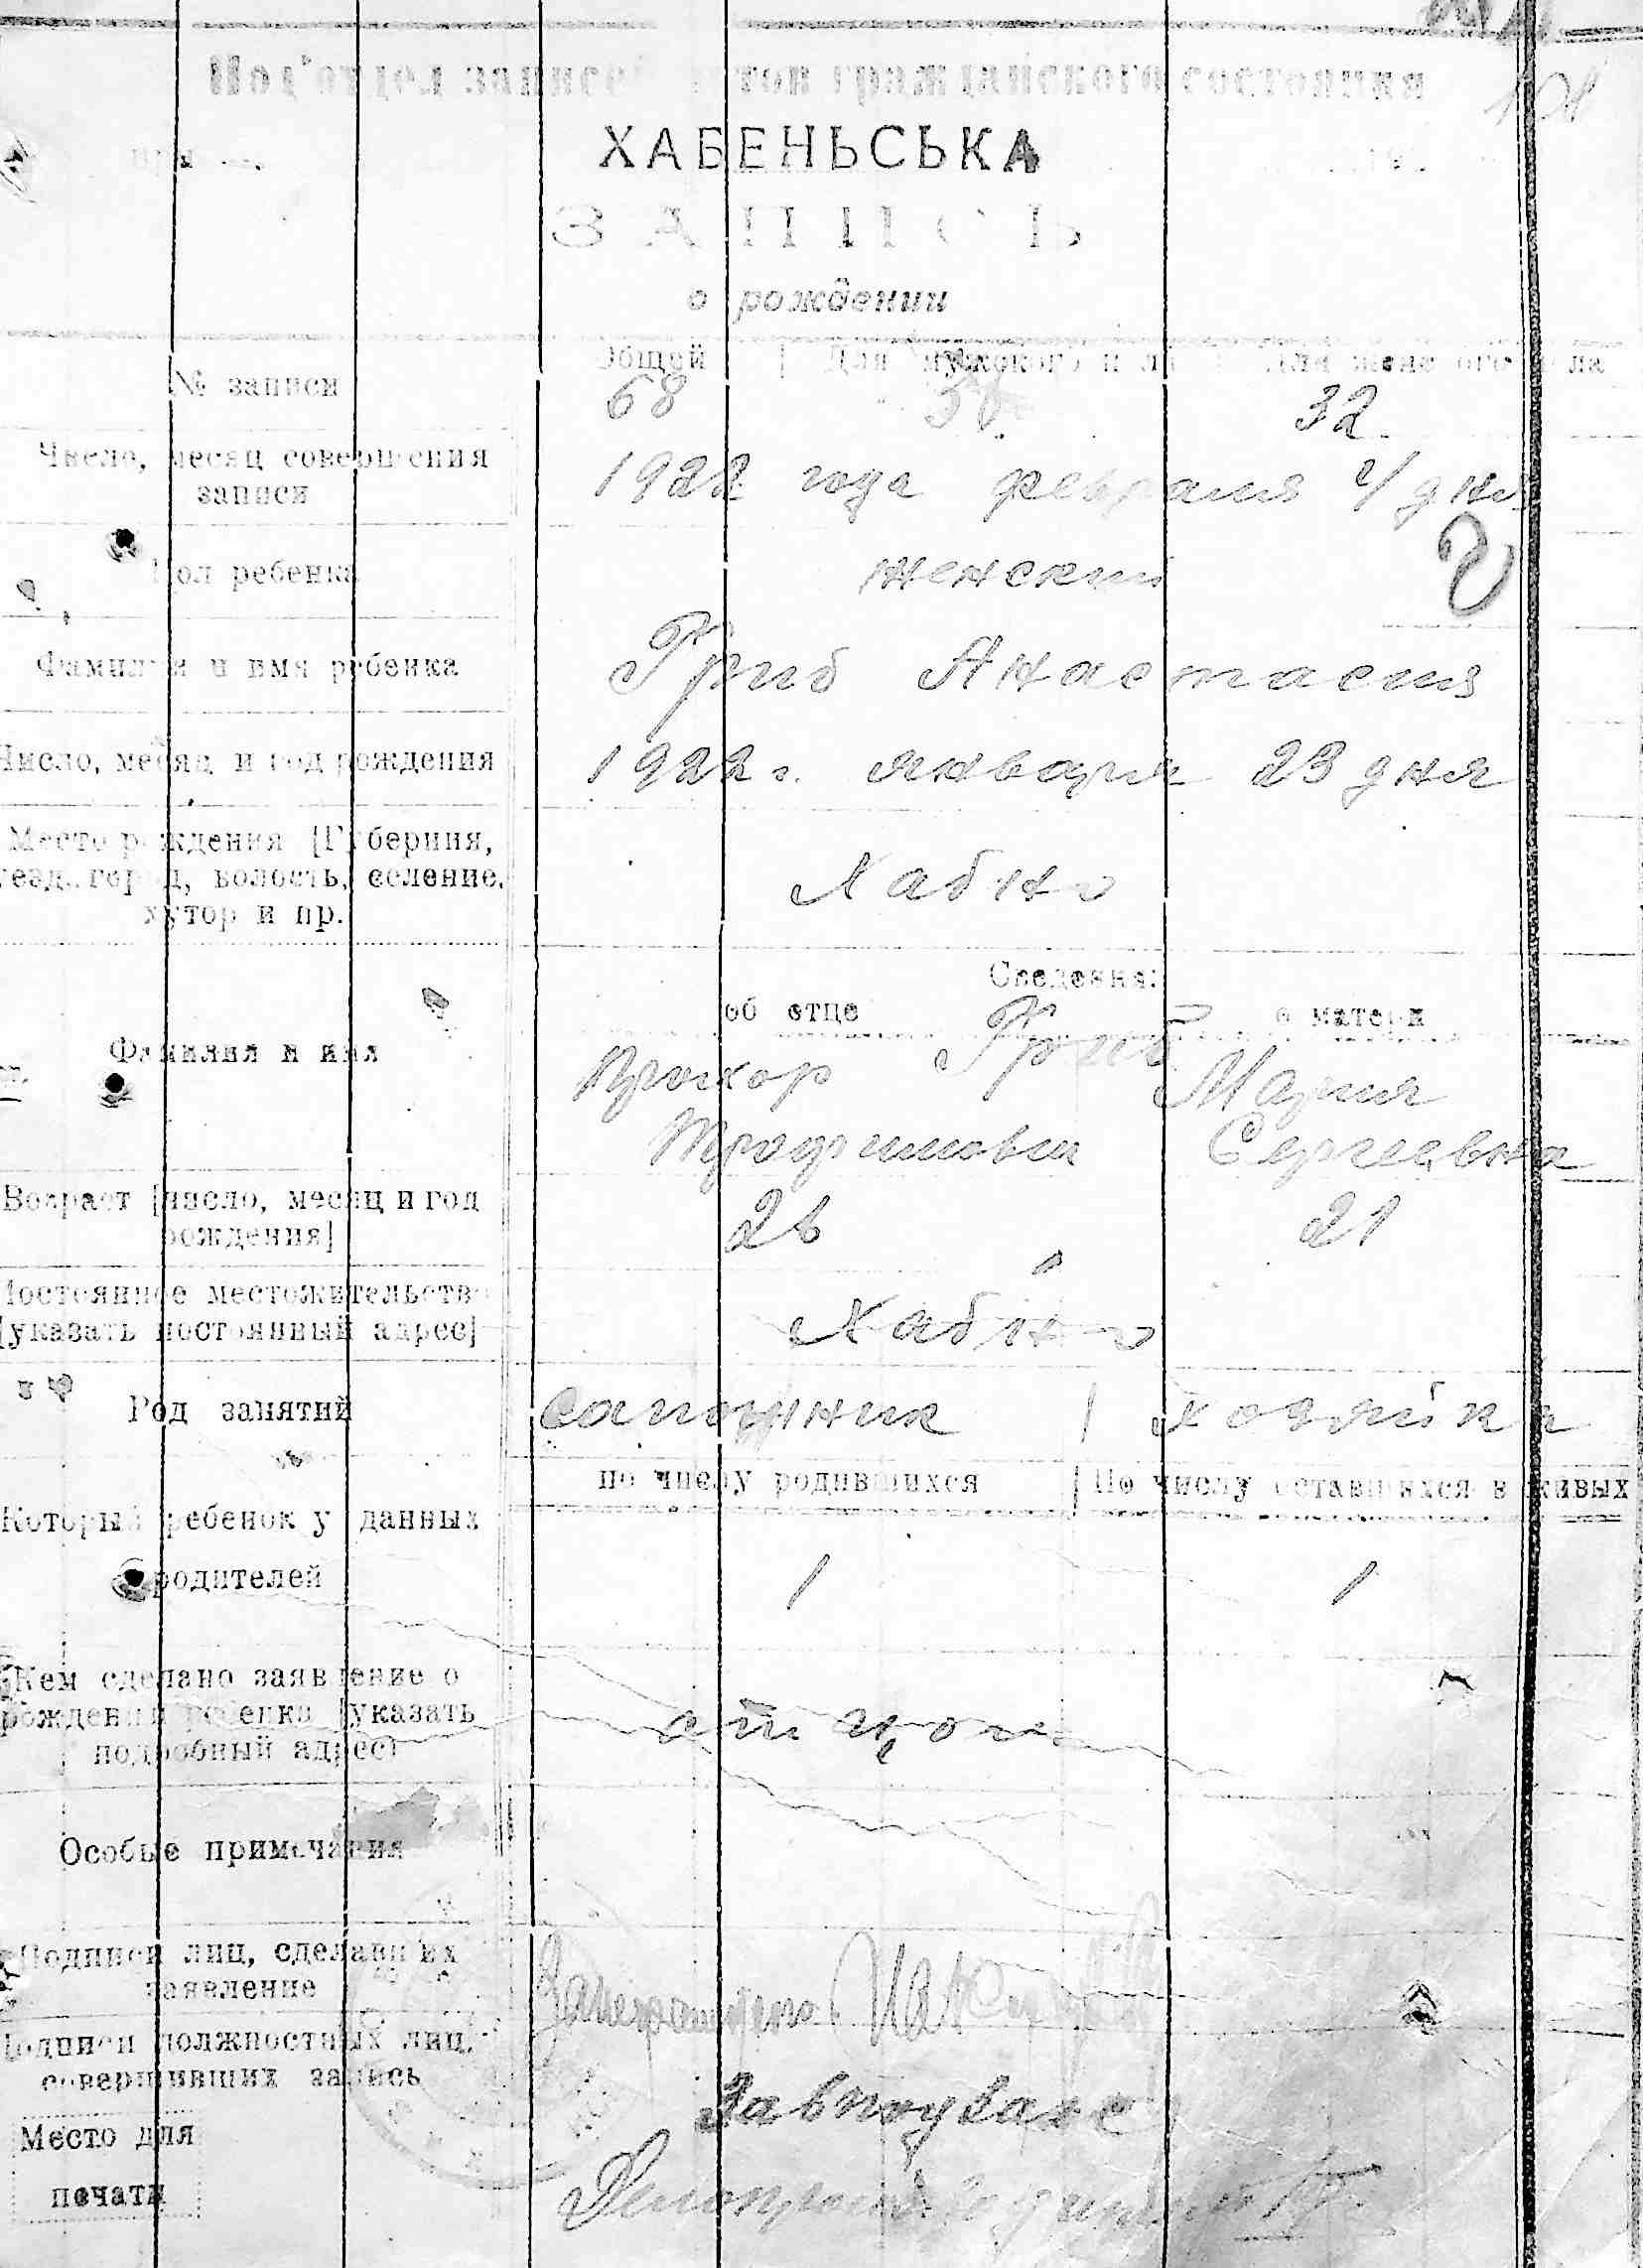 Под'отдел записей актов гражданского состояния
ХАБЕНЬСЬКА
ЗАПИСЬ
о рождении
№ записи
Общей
Для мужского пола
Для женского пола
68
32
Число, месяц совершения
записи
1922 года февраля 4 дня
Пол ребенка
женский
Фамилия и имя ребенка
Гриб Анастасия
Число, месяц и год рождения
1922 г. января 23 дня
Место рождения [Губерния,
уезд, город, волость, селение,
хутор и пр.
Хабно
Сведения:
об отце
о матери
Фамилия и имя
Гриб
Прохор
Мария
Трофимович
Сергеевна
Возраст [число, месяц и год
рождения]
26
21
Постоянное местожительство
[указать постоянный адрес]
Хабно
Род занятий
сапожник
хозяйка
по числу родившихся
По числу оставшихся в живых
Который ребенок у данных
родителей
1
1
Кем сделано заявление о
рождении ребенка [указать
подробный адрес]
отцом
Особые примечания
Подписи лиц, сделавших
заявление
Подписи должностных лиц,
совершивших запись
Завподзагс
Место для
печати